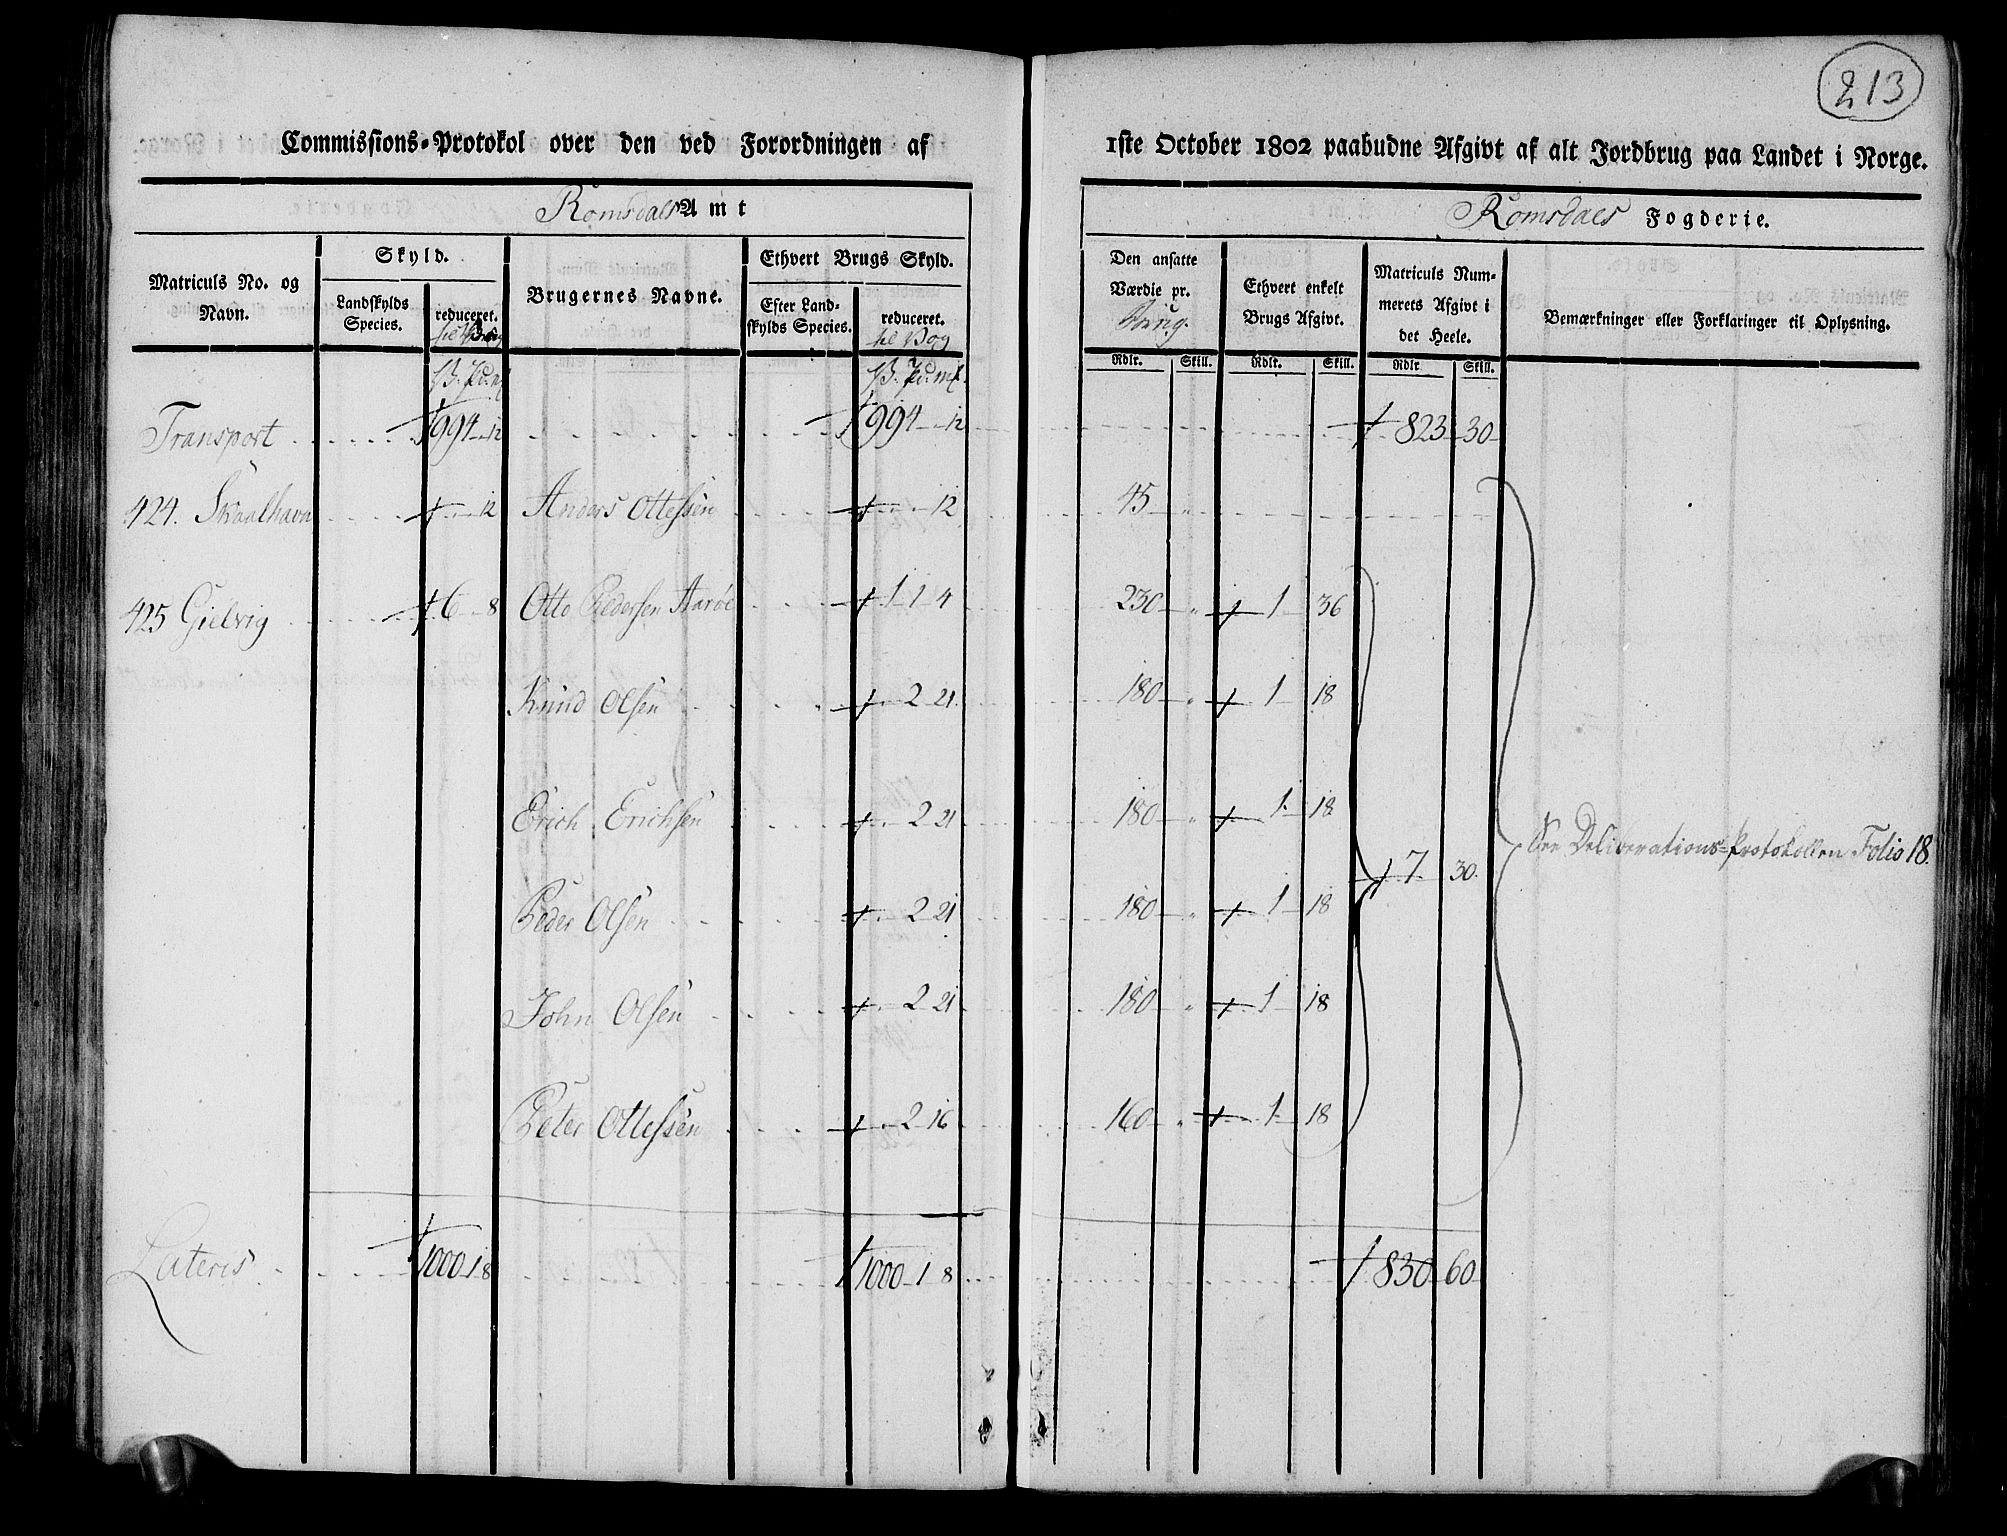 213
Commissions-Protokol over den ved Forordningen af 1ste October 1802 paabudne Afgivt af alt Jordbrug paa Landet i Norge.
Romsdals Amt
Romsdals Fogderie.
Matriculs No. og Navn.
Skyld.
Landskylds Species.
reduceret. til Vog
Brugernes Navne.
Ethvert Brugs Skyld.
Efter Landskylds Species.
reduceret. til Vog
Den ansatte Værdie pr.
Ethvert enkelt Brugs Afgivt.
Matriculs Nummerets Afgivt i det Heele.
Bemærkninger eller Forklaringer til Oplysning.
Rdlr. Skill. Rdlr. Skill. Rdlr. Skill.
Transport 994 " 12 994 " 12 823 30
424. Skaalhavn " " 12 Anders Ottessen " " 12 45 "
425 Gielvig 6 " 8 Otto Pedersen Aarøe 1 1 4 230 " 1 36
Knud Olsen " 2 21 180 " 1 18
Erich Erichsen " 2 21 180 " 1 18
7 30 See Deliberations-Protokollen Folio 18.
Peder Olsen " 2 21 180 " 1 18
John Olsen " 2 21 180 " 1 18
Peter Ottessen " 2 16 160 " 1 18
Lateris 1000 1 8 1000 1 8 830 60